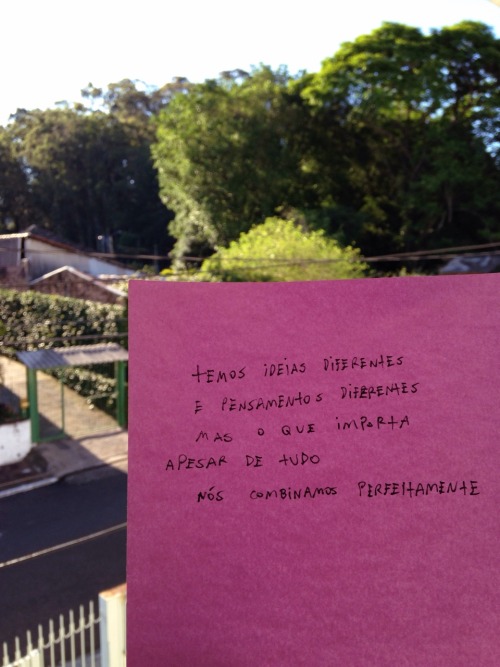 TEMOS IDEIAS DIFERENTES
E PENSAMENTOS DIFERENTES
MAS O QUE IMPORTA
APESAR DE TUDO
NÓS COMBINAMOS PERFEITAMENTE